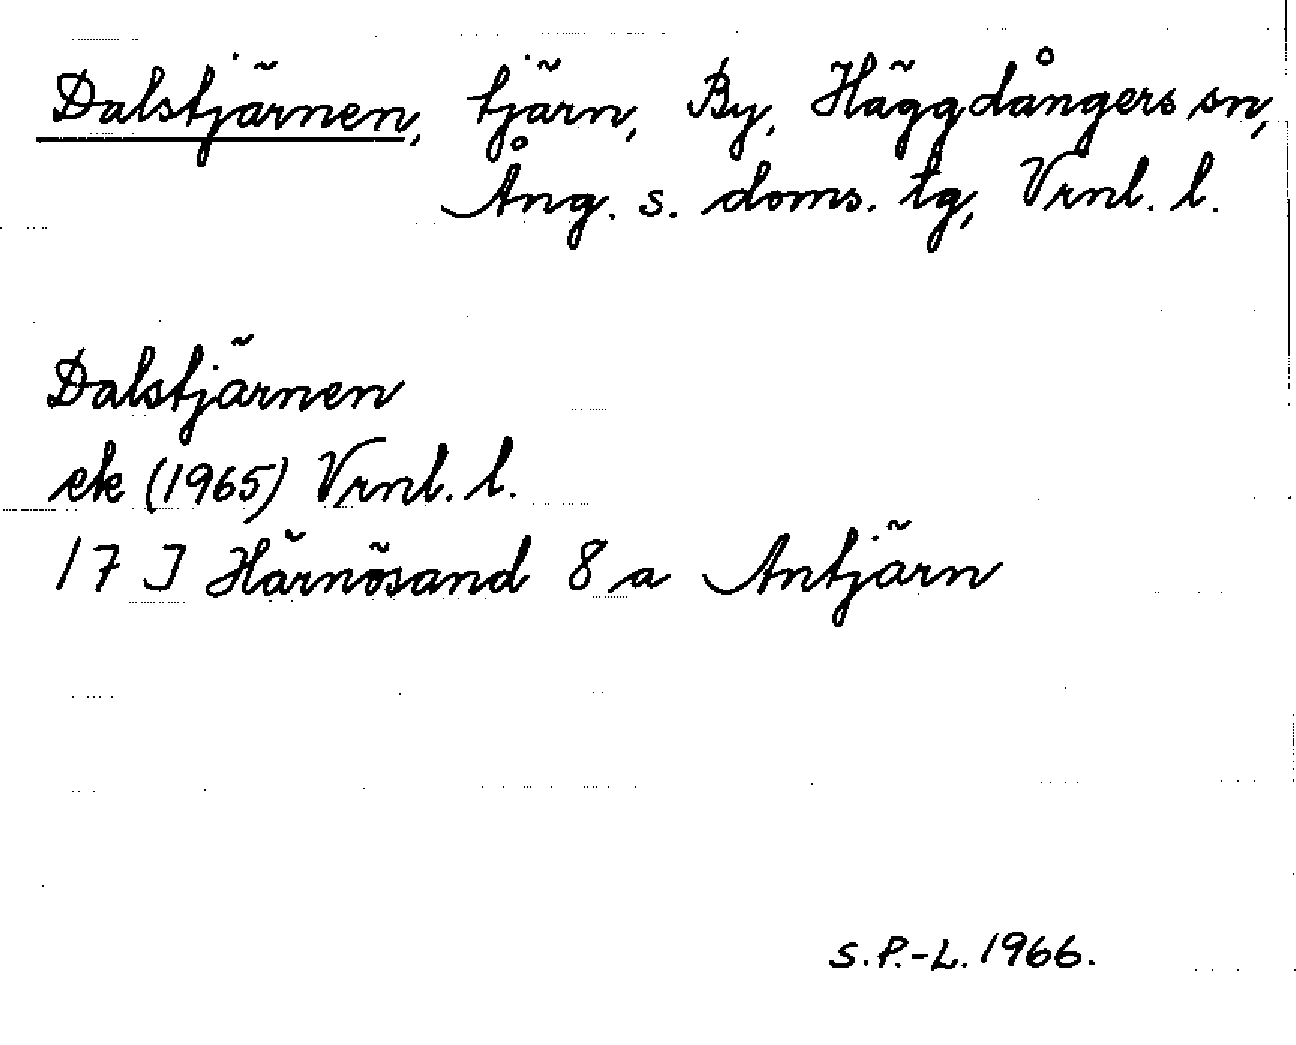 Dalstjärnen, tjärn, By, Häggdångers sn,
Ång. s. doms. tg, Vrnl. l.
Dalstjärnen
ek (1965) Vrnl. l.
17 I Härnösand 8 a Antjärn
S.P.-L. 1966.